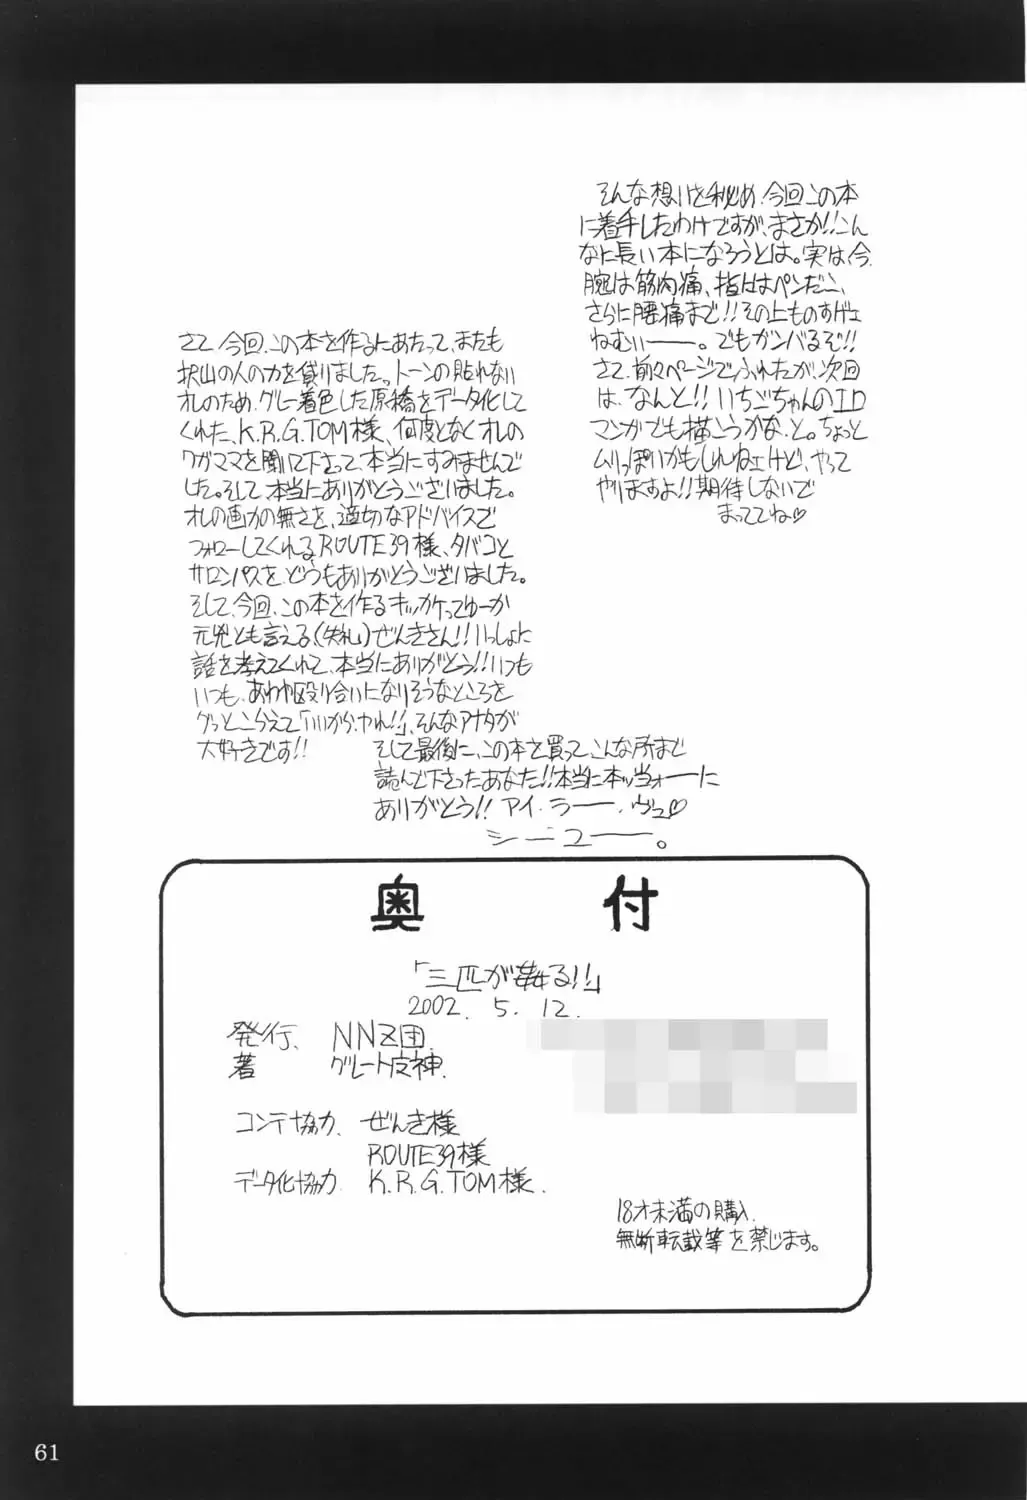 そんな想いを秘め、今回この本
に着手したわけですが、まさか!!こん
なに長い本になろうとは。実は、今、
腕は筋肉痛、指はペンだこ、
さらに腰痛まで!!その上ものすげェ
ねむぃーーー。でもガンバるぞ!!
さて、前々ページでふれたが、次回
は、なんと!!いちごちゃんのエロ
マンガでも描こうかな、と。ちょっと
ムリっぽいかもしれねェけど、やって
やりますよ!!期待しないで
まっててね♡
さて、今回、この本を作るにあたって、またも
沢山の人の力を借りました。トーンの貼れない
オレのため、グレー着色した原稿をデータ化して
くれた、K.R.G.TOM様、何度となくオレの
ワガママを聞いて下さって、本当にすみませんで
した。そして、本当にありがとうございました。
オレの画力の無さを、適切なアドバイスで
フォローしてくれる、ROUTE39様、タバコと
サロンパスを、どうもありがとうございました。
そして、今回、この本を作るキッカケってゆーか
元兇とも言える、(失礼)ぜんきさん!!いっしょに
話を考えてくれて、本当にありがとう!!いつも
いつも、あわや殴り合いになりそうなところを
グッとこらえて「いいから、やれ!!」、そんなアナタが
大好きです!!
そして最後に、この本を買って、こんな所まで
読んで下さったあなた!!本当に本ッ当ォーーに
ありがとう!!アイ・ラーー・ヴュ♡
シーユーー。
奥付
「三匹が姦る!!」
2002. 5. 12.
発行、NNZ団.
著 グレート皮神.
コンテ協力、ぜんき様
ROUTE39様
データ化協力 K.R.G.TOM様.
18才未満の購入、
無断転載等を禁じます。
61